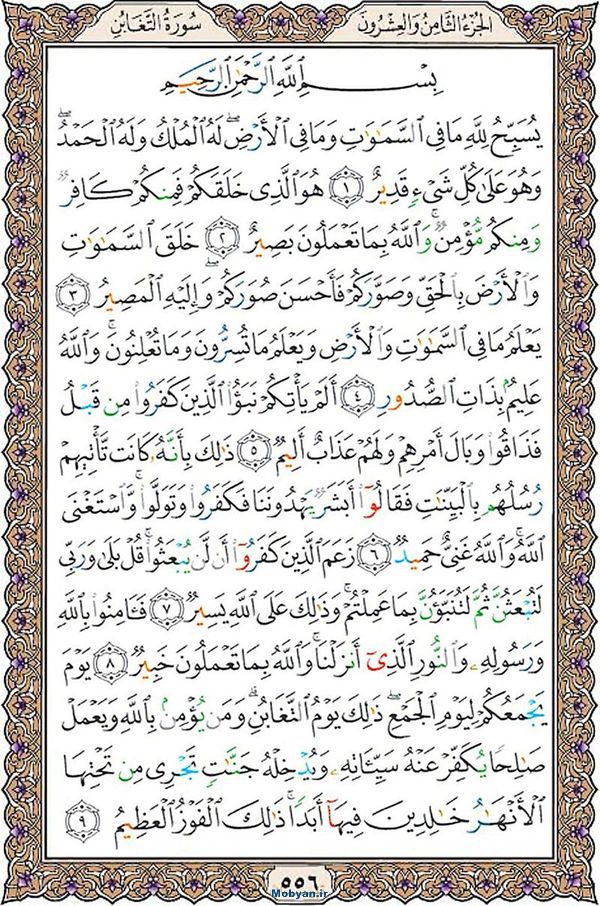 الجُزءُ الثَّامِنُ وَالعِشرُونَ
سُورَةُ التَّغَابُنِ
بِسۡمِ ٱللَّهِ ٱلرَّحۡمَٰنِ ٱلرَّحِيمِ
يُسَبِّحُ لِلَّهِ مَا فِي ٱلسَّمَٰوَٰتِ وَمَا فِي ٱلۡأَرۡضِۖ لَهُ ٱلۡمُلۡكُ وَلَهُ ٱلۡحَمۡدُۖ
وَهُوَ عَلَىٰ كُلِّ شَيۡءٖ قَدِيرٌ ١ هُوَ ٱلَّذِي خَلَقَكُمۡ فَمِنكُمۡ كَافِرٞ
وَمِنكُم مُّؤۡمِنٞۚ وَٱللَّهُ بِمَا تَعۡمَلُونَ بَصِيرٌ ٢ خَلَقَ ٱلسَّمَٰوَٰتِ
وَٱلۡأَرۡضَ بِٱلۡحَقِّ وَصَوَّرَكُمۡ فَأَحۡسَنَ صُوَرَكُمۡۖ وَإِلَيۡهِ ٱلۡمَصِيرُ ٣
يَعۡلَمُ مَا فِي ٱلسَّمَٰوَٰتِ وَٱلۡأَرۡضِ وَيَعۡلَمُ مَا تُسِرُّونَ وَمَا تُعۡلِنُونَۚ وَٱللَّهُ
عَلِيمُۢ بِذَاتِ ٱلصُّدُورِ ٤ أَلَمۡ يَأۡتِكُمۡ نَبَؤُاْ ٱلَّذِينَ كَفَرُواْ مِن قَبۡلُ
فَذَاقُواْ وَبَالَ أَمۡرِهِمۡ وَلَهُمۡ عَذَابٌ أَلِيمٞ ٥ ذَٰلِكَ بِأَنَّهُۥ كَانَت تَّأۡتِيهِمۡ
رُسُلُهُم بِٱلۡبَيِّنَٰتِ فَقَالُوٓاْ أَبَشَرٞ يَهۡدُونَنَا فَكَفَرُواْ وَتَوَلَّواْۚ وَّٱسۡتَغۡنَى
ٱللَّهُۚ وَٱللَّهُ غَنِيٌّ حَمِيدٞ ٦ زَعَمَ ٱلَّذِينَ كَفَرُوٓاْ أَن لَّن يُبۡعَثُواْۚ قُلۡ بَلَىٰ وَرَبِّي
لَتُبۡعَثُنَّ ثُمَّ لَتُنَبَّؤُنَّ بِمَا عَمِلۡتُمۡۚ وَذَٰلِكَ عَلَى ٱللَّهِ يَسِيرٞ ٧ فَـَٔامِنُواْ بِٱللَّهِ
وَرَسُولِهِۦ وَٱلنُّورِ ٱلَّذِيٓ أَنزَلۡنَاۚ وَٱللَّهُ بِمَا تَعۡمَلُونَ خَبِيرٞ ٨ يَوۡمَ
يَجۡمَعُكُمۡ لِيَوۡمِ ٱلۡجَمۡعِۖ ذَٰلِكَ يَوۡمُ ٱلتَّغَابُنِۗ وَمَن يُؤۡمِنۢ بِٱللَّهِ وَيَعۡمَلۡ
صَٰلِحٗا يُكَفِّرۡ عَنۡهُ سَيِّـَٔاتِهِۦ وَيُدۡخِلۡهُ جَنَّٰتٖ تَجۡرِي مِن تَحۡتِهَا
ٱلۡأَنۡهَٰرُ خَٰلِدِينَ فِيهَآ أَبَدٗاۚ ذَٰلِكَ ٱلۡفَوۡزُ ٱلۡعَظِيمُ ٩
٥٥٦
Mobyan.ir